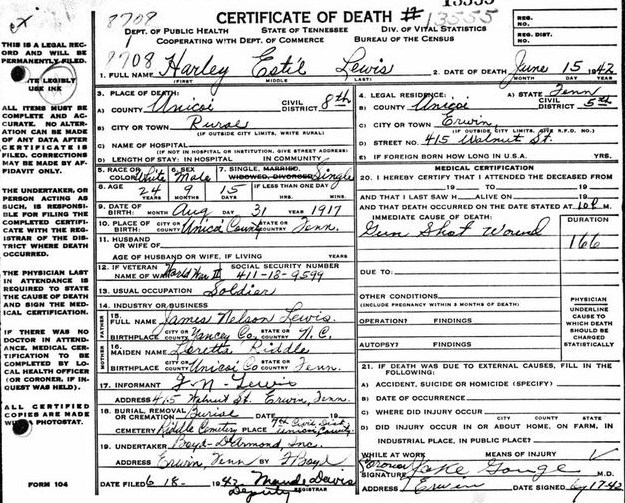 13555
8708
CERTIFICATE OF DEATH # 13555
DEPT. OF PUBLIC HEALTH STATE OF TENNESSEE DIV. OF VITAL STATISTICS
COOPERATING WITH DEPT. OF COMMERCE BUREAU OF THE CENSUS
REG. NO.
REG. DIST.
1
8708
1. FULL NAME Harley Estil Lewis
(FIRST) (MIDDLE) (LAST)
2. DATE OF DEATH June 15 1942
MONTH DAY YEAR
THIS IS A LEGAL RECORD AND WILL BE PERMANENTLY FILED.
WRITE LEGIBLY
USE INK
ALL ITEMS MUST BE COMPLETE AND ACCURATE. NO ALTERATION CAN BE MADE OF ANY DATA AFTER CERTIFICATE IS FILED. CORRECTIONS MAY BE MADE BY AFFIDAVIT ONLY.
THE UNDERTAKER, OR PERSON ACTING AS SUCH, IS RESPONSIBLE FOR FILING THE COMPLETED CERTIFICATE WITH THE REGISTRAR OF THE DISTRICT WHERE DEATH OCCURRED.
THE PHYSICIAN LAST IN ATTENDANCE IS REQUIRED TO STATE THE CAUSE OF DEATH AND SIGN THE MEDICAL CERTIFICATION.
IF THERE WAS NO DOCTOR IN ATTENDANCE, MEDICAL CERTIFICATION TO BE COMPLETED BY LOCAL HEALTH OFFICER (OR CORONER, IF INQUEST WAS HELD).
ALL CERTIFIED COPIES ARE MADE WITH PHOTOSTAT.
FORM 104
3. PLACE OF DEATH:
A) COUNTY Unicoi CIVIL DISTRICT 8th
B) CITY OR TOWN Rural
(IF OUTSIDE CITY LIMITS, WRITE RURAL)
C) NAME OF HOSPITAL
(IF NOT IN HOSPITAL OR INSTITUTION, GIVE STREET ADDRESS)
D) LENGTH OF STAY: IN HOSPITAL IN THIS COMMUNITY
4. LEGAL RESIDENCE: A) STATE Tenn
B) COUNTY Unicoi CIVIL DISTRICT 5th
C) CITY OR TOWN Erwin
(IF OUTSIDE CITY LIMITS, GIVE R.F.D. NO.)
D) STREET NO. 415 Walnut St.
E) IF FOREIGN BORN HOW LONG IN U.S.A. YRS.
5. RACE OR COLOR White 6. SEX Male 7. SINGLE, MARRIED, WIDOWED, DIVORCED Single
8. AGE 24 9 15 IF LESS THAN ONE DAY
YEARS MONTHS DAYS HRS. MIN.
9. DATE OF BIRTH: MONTH Aug DAY 31 YEAR 1917
10. PLACE OF BIRTH: CITY OR COUNTY Unicoi County STATE OR COUNTRY Tenn.
11. HUSBAND OR WIFE OF
AGE OF HUSBAND OR WIFE, IF LIVING YEARS
12. IF VETERAN NAME OF WAR World War II SOCIAL SECURITY NUMBER 411-18-9599
13. USUAL OCCUPATION Soldier
14. INDUSTRY OR BUSINESS
FATHER
15. FULL NAME James Nelson Lewis
BIRTHPLACE CITY OR COUNTY Yancey Co. STATE OR COUNTRY N.C.
MOTHER
16. MAIDEN NAME Loretta Riddle
BIRTHPLACE CITY OR COUNTY Unicoi Co STATE OR COUNTRY Tenn.
17. INFORMANT J. N. Lewis
ADDRESS 415 Walnut St. Erwin, Tenn.
18. BURIAL, REMOVAL OR CREMATION Burial DATE 19
CEMETERY Riddle Cemetery PLACE 7th Civil Dist Unicoi County
19. UNDERTAKER Boyd-DeArmond, Inc.
ADDRESS Erwin, Tenn BY F Boyd
DATE FILED 6-18- 1942 Maude Davis
Deputy REGISTRAR
MEDICAL CERTIFICATION
20. I HEREBY CERTIFY THAT I ATTENDED THE DECEASED FROM
19 TO 19
AND THAT I LAST SAW H ALIVE ON 19
AND THAT DEATH OCCURRED ON THE DATE STATED AT 10 P M.
IMMEDIATE CAUSE OF DEATH: DURATION
Gun Shot Wound
166
DUE TO:
OTHER CONDITIONS:
(INCLUDE PREGNANCY WITHIN 3 MONTHS OF DEATH)
OPERATION? FINDINGS
AUTOPSY? FINDINGS
PHYSICIAN UNDERLINE CAUSE TO WHICH DEATH SHOULD BE CHARGED STATISTICALLY
21. IF DEATH WAS DUE TO EXTERNAL CAUSES, FILL IN THE FOLLOWING:
A) ACCIDENT, SUICIDE OR HOMICIDE (SPECIFY)
B) DATE OF OCCURRENCE
C) WHERE DID INJURY OCCUR
CITY COUNTY STATE
D) DID INJURY OCCUR IN OR ABOUT HOME, ON FARM, IN INDUSTRIAL PLACE, IN PUBLIC PLACE?
WHILE AT WORK MEANS OF INJURY
Coroner
SIGNATURE Jake Gouge M.D.
ADDRESS Erwin DATE SIGNED 6/17 42